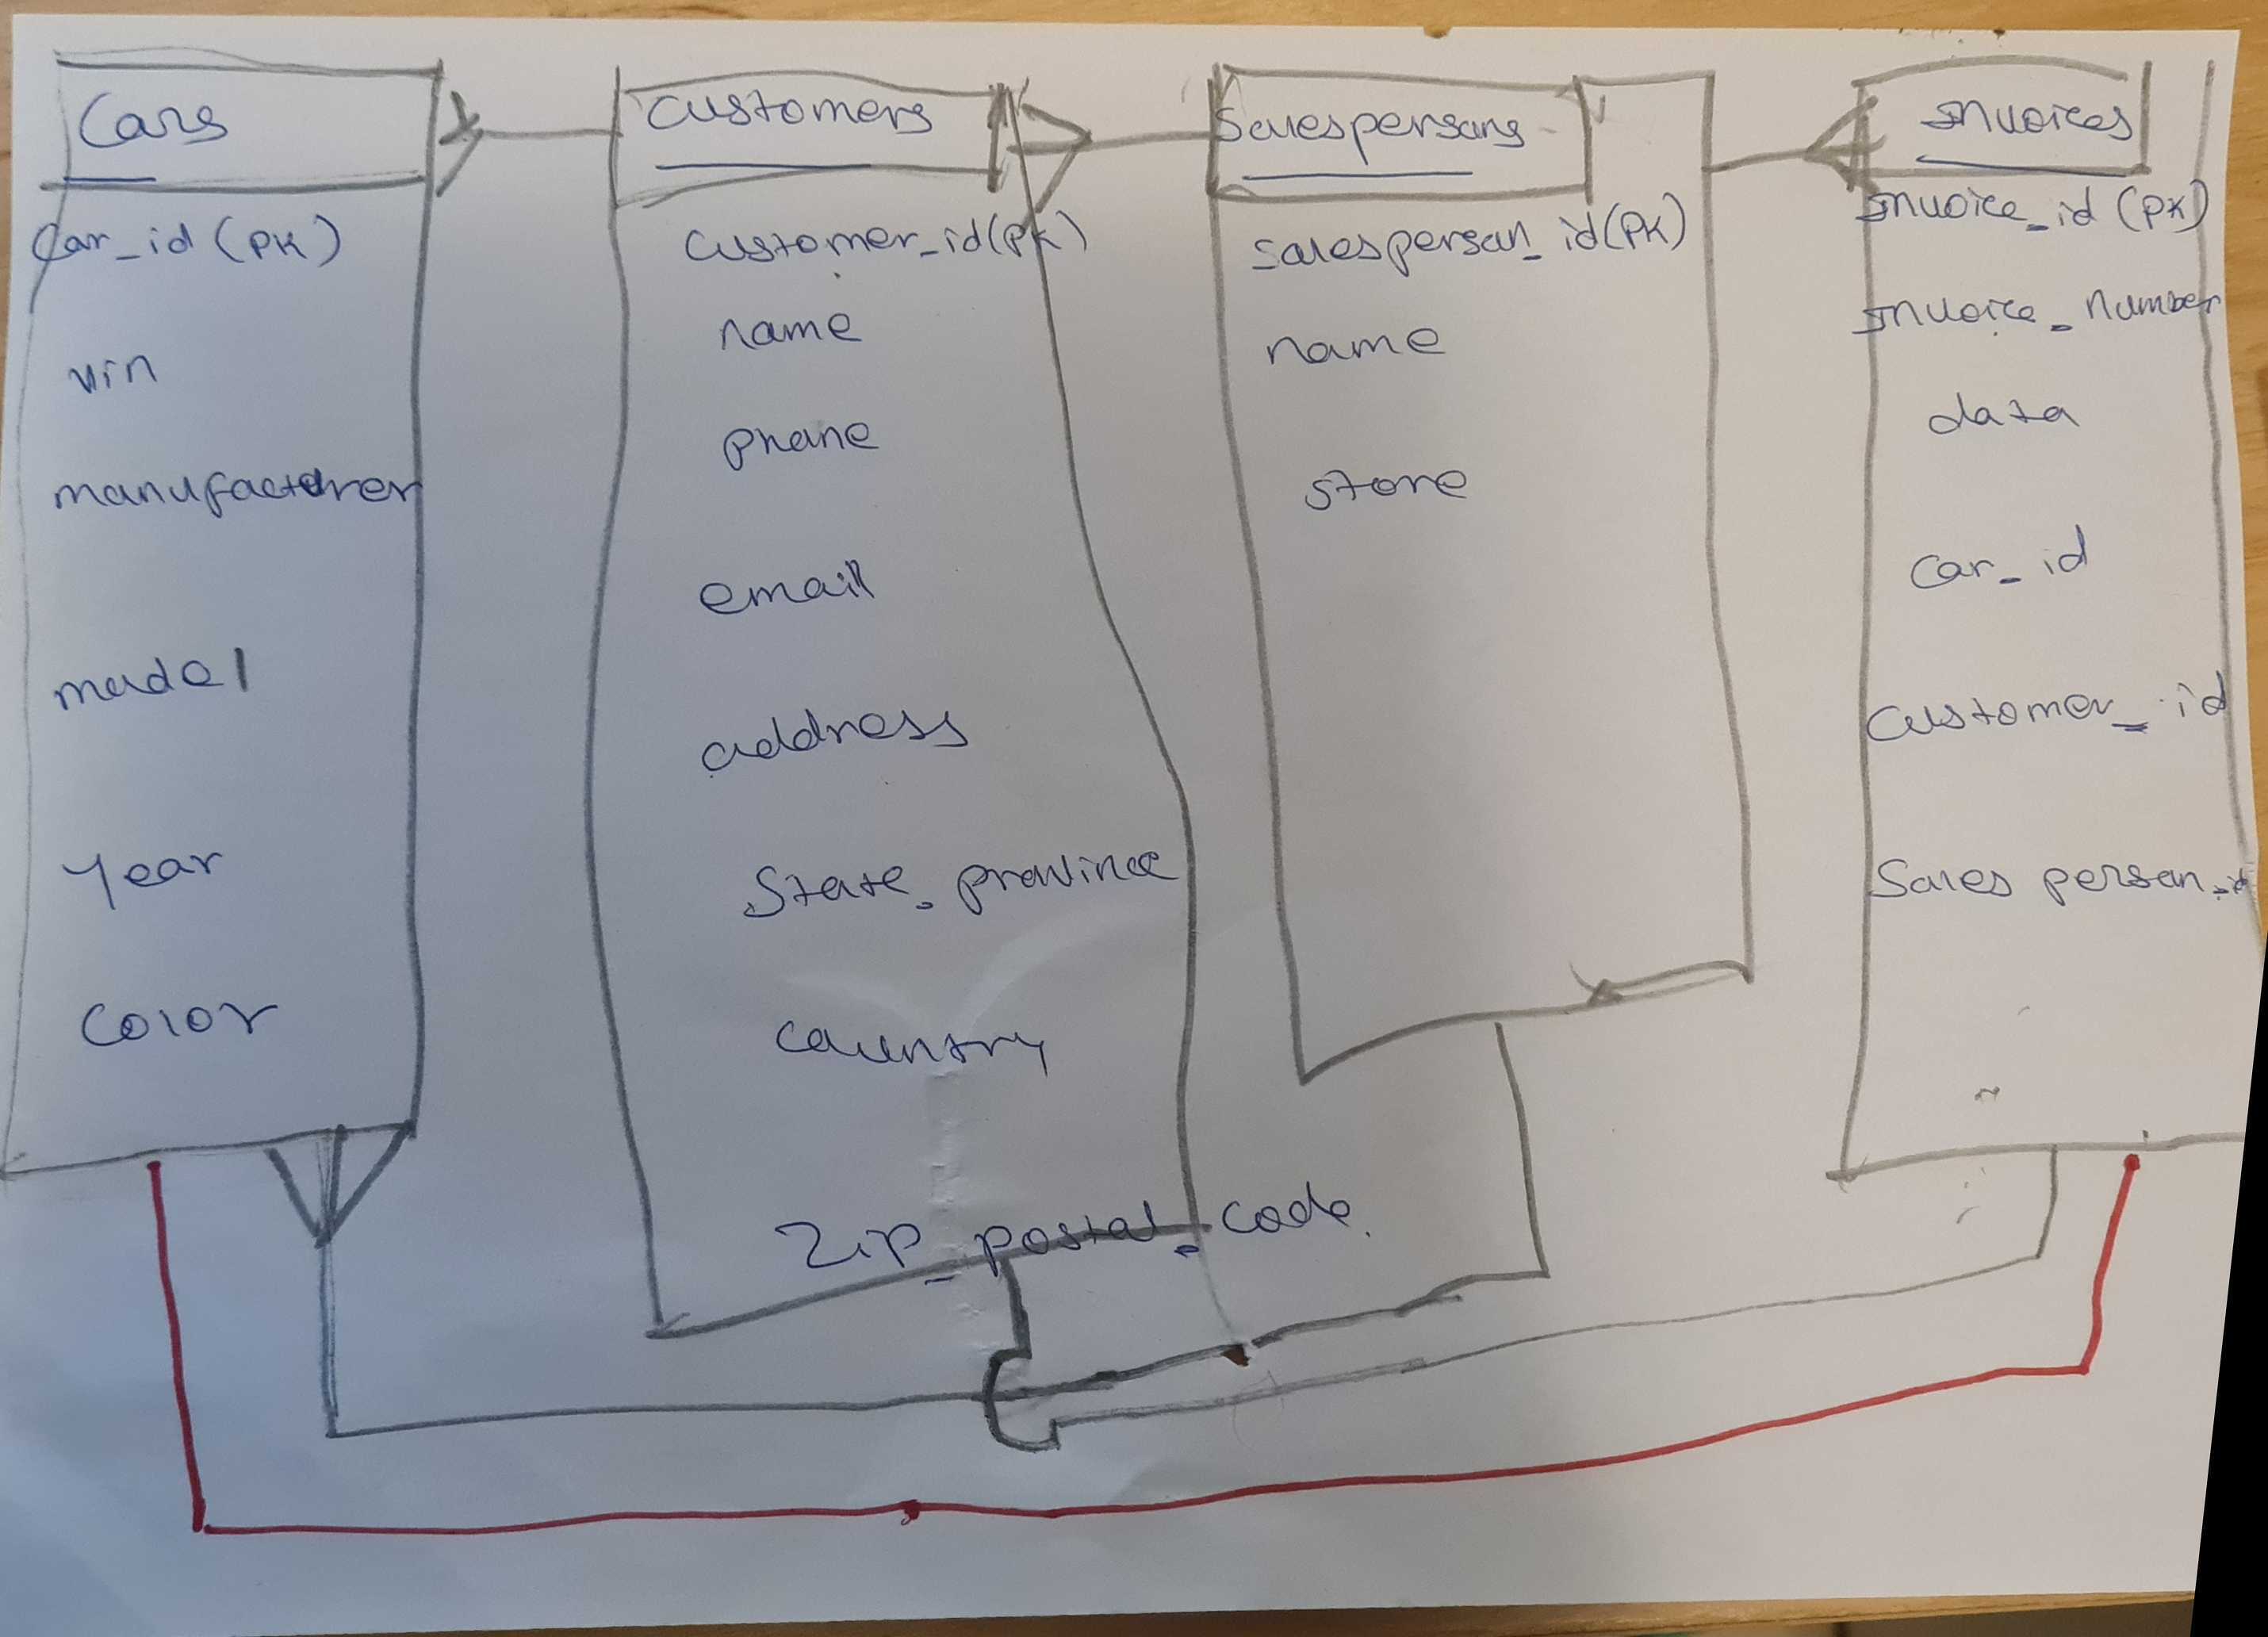 Cars
car_id (PK)
vin
manufacturer
model
year
color
customers
customer_id(PK)
name
phone
email
address
State_province
country
Zip_postal_code.
Salespersons
salesperson_id(PK)
name
store
Invoices
Invoice_id (PK)
Invoice_number
data
car_id
customer_id
Sales person_id